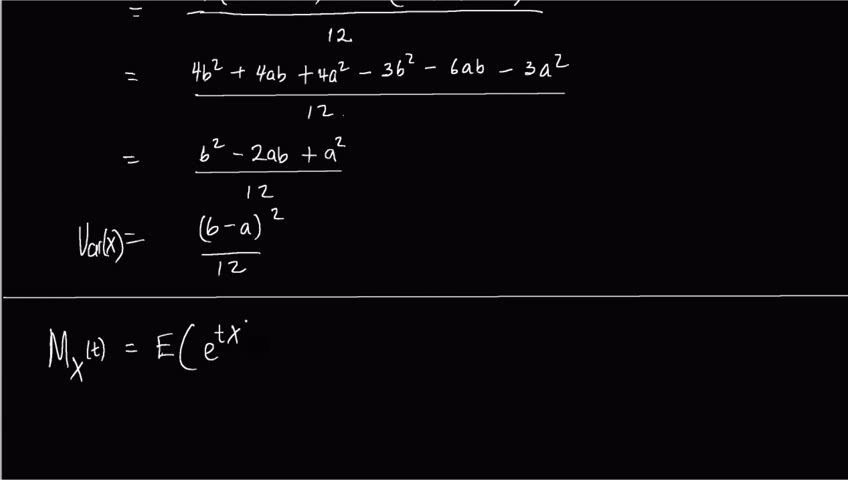 =
12
= 4b² + 4ab + 4a² - 3b² - 6ab - 3a²
12
= b² - 2ab + a²
12
Var(x) = (b-a)²
12
M_X(t) = E(e^{tX}